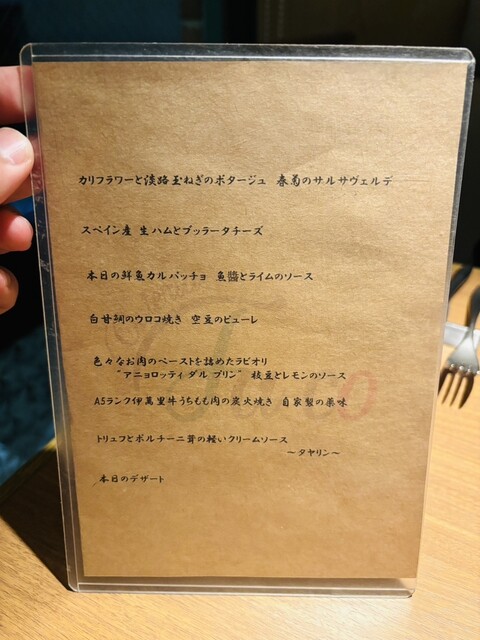 カリフラワーと淡路玉ねぎのポタージュ 春菊のサルサヴェルデ
スペイン産 生ハムとブッラータチーズ
本日の鮮魚カルパッチョ 魚醬とライムのソース
白甘鯛のウロコ焼き 空豆のピューレ
色々なお肉のペーストを詰めたラビオリ
"アニョロッティ ダル プリン" 枝豆とレモンのソース
A5ランク伊萬里牛うちもも肉の炭火焼き 自家製の薬味
トリュフとポルチーニ茸の軽いクリームソース
～タヤリン～
本日のデザート